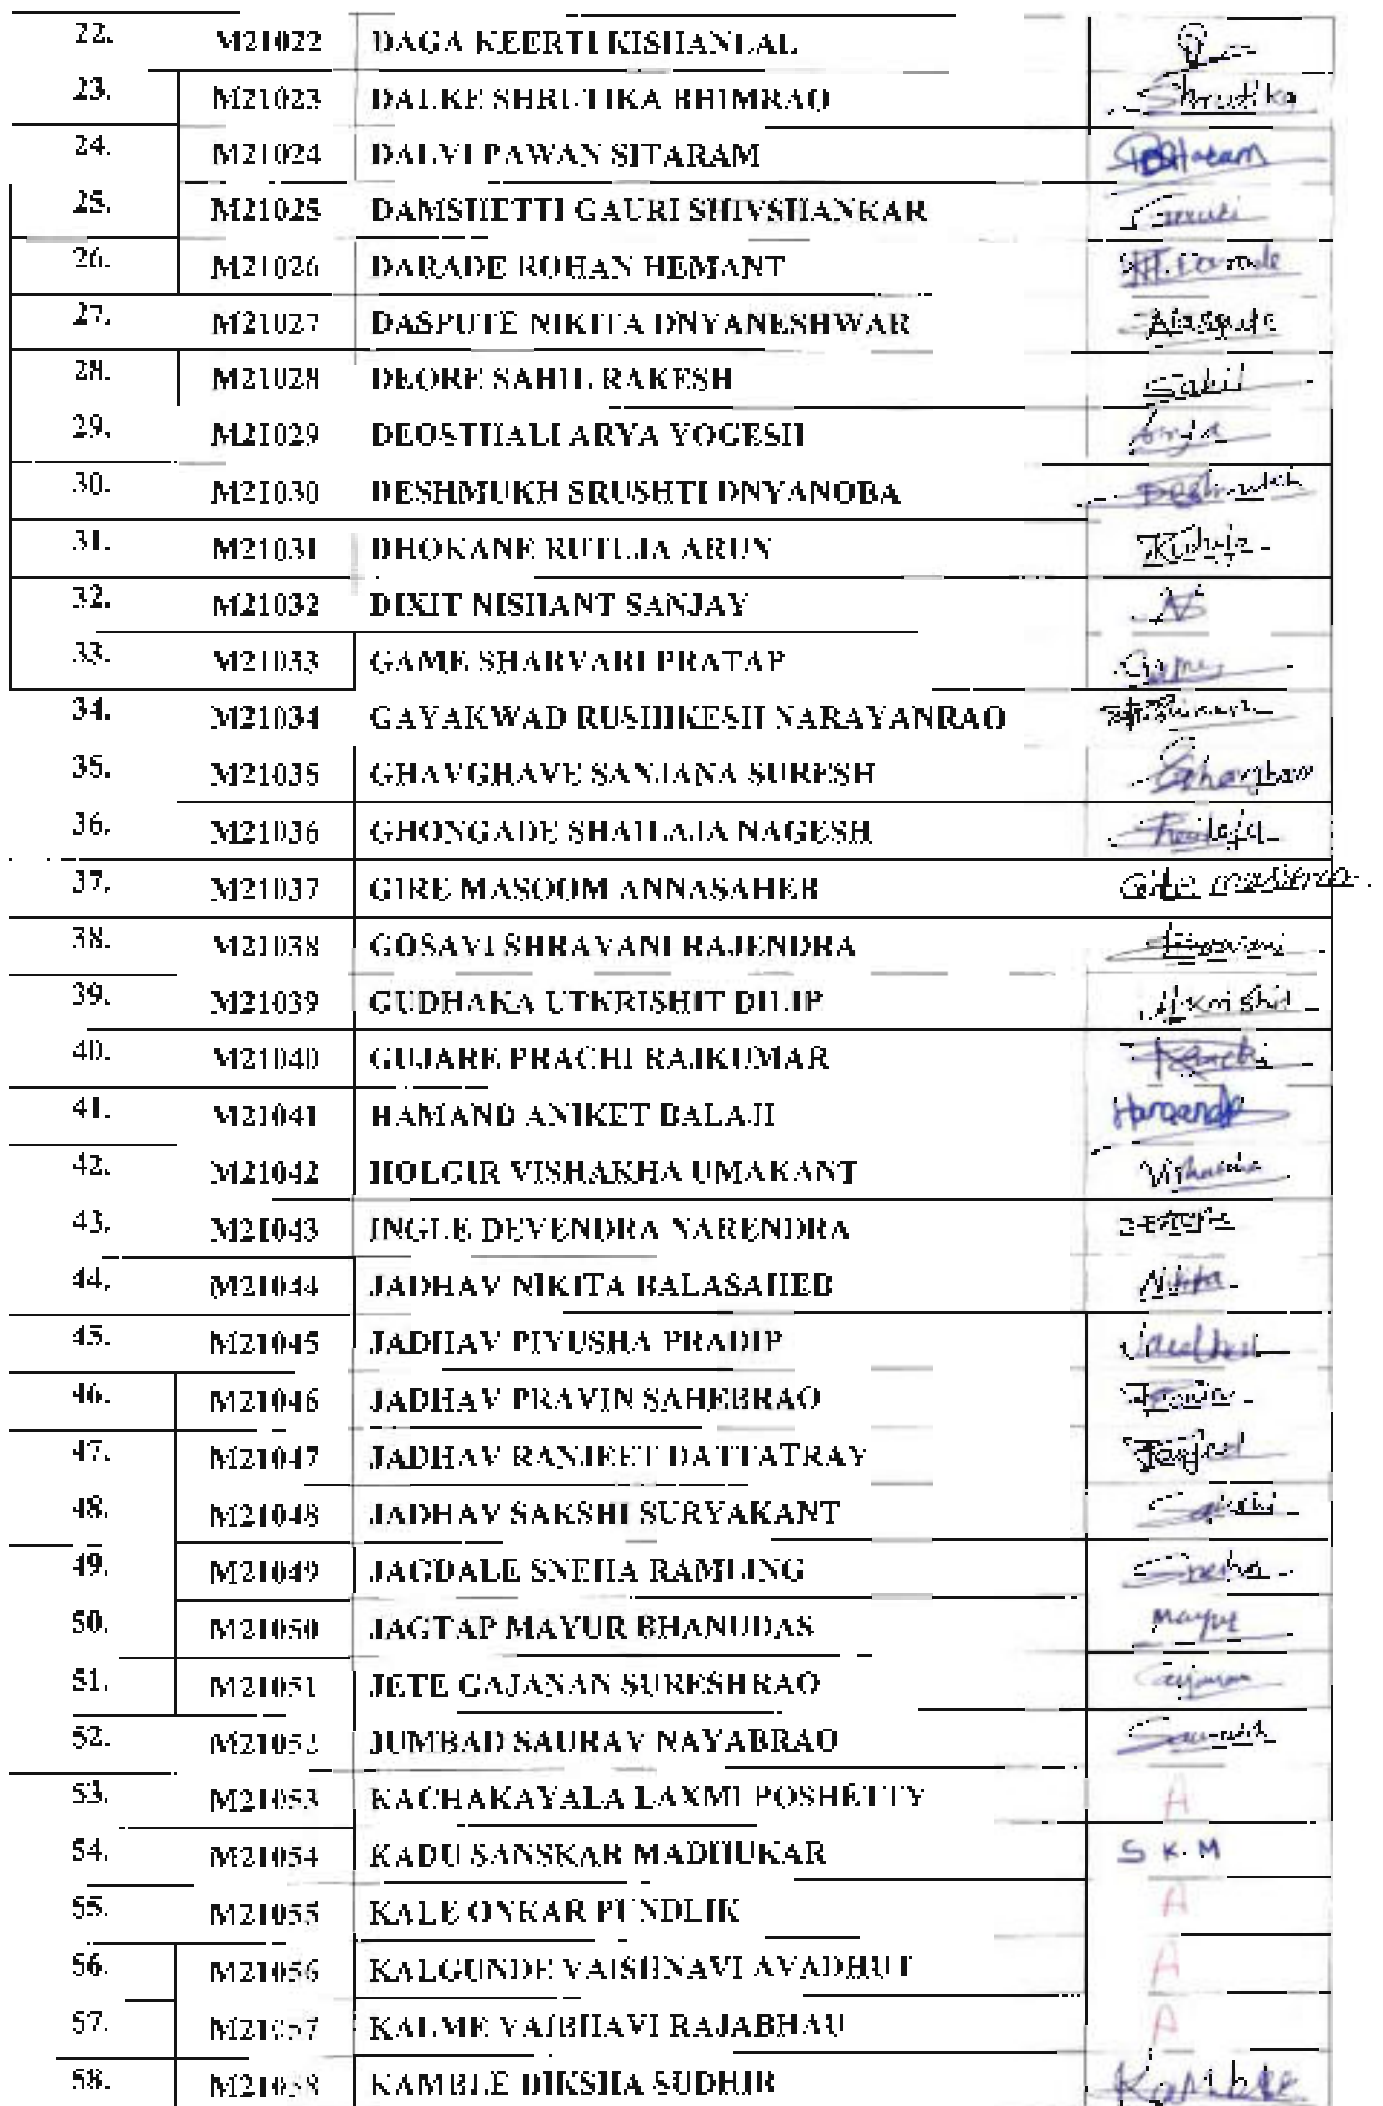 22. M21022 DAGA KEERTI KISHANLAL
23. M21023 DALKE SHRUTIKA BHIMRAO Shrutika
24. M21024 DALVI PAWAN SITARAM
25. M21025 DAMSHETTI GAURI SHIVSHANKAR Gauri
26. M21026 DARADE ROHAN HEMANT
27. M21027 DASPUTE NIKITA DNYANESHWAR
28. M21028 DEORE SAHIL RAKESH Sahil
29. M21029 DEOSTHALI ARYA YOGESH Arya
30. M21030 DESHMUKH SRUSHTI DNYANOBA Deshmukh
31. M21031 DHOKANE RUTUJA ARUN Rutuja
32. M21032 DIXIT NISHANT SANJAY
33. M21033 GAME SHARVARI PRATAP Game
34. M21034 GAYAKWAD RUSHIKESH NARAYANRAO
35. M21035 GHAVGHAVE SANJANA SURESH
36. M21036 GHONGADE SHAILAJA NAGESH Shailaja
37. M21037 GIRE MASOOM ANNASAHEB Gire masoom
38. M21038 GOSAVI SHRAVANI RAJENDRA
39. M21039 GUDHAKA UTKRISHIT DILIP Utkrishit
40. M21040 GUJARE PRACHI RAJKUMAR Prachi
41. M21041 HAMAND ANIKET BALAJI
42. M21042 HOLGIR VISHAKHA UMAKANT Vishakha
43. M21043 INGLE DEVENDRA NARENDRA
44. M21044 JADHAV NIKITA BALASAHEB Nikita
45. M21045 JADHAV PIYUSHA PRADIP Jadhav
46. M21046 JADHAV PRAVIN SAHEBRAO Pravin
47. M21047 JADHAV RANJEET DATTATRAY Ranjeet
48. M21048 JADHAV SAKSHI SURYAKANT Sakshi
49. M21049 JAGDALE SNEHA RAMLING Sneha
50. M21050 JAGTAP MAYUR BHANUDAS Mayur
51. M21051 JETE GAJANAN SURESHRAO Gajanan
52. M21052 JUMBAD SAURAV NAYABRAO Saurabh
53. M21053 KACHAKAYALA LAXMI POSHETTY A
54. M21054 KADU SANSKAR MADHUKAR S K. M
55. M21055 KALE ONKAR PUNDLIK A
56. M21056 KALGUNDE VAISHNAVI AVADHUT A
57. M21057 KALME VAIBHAVI RAJABHAU A
58. M21058 KAMBLE DIKSHA SUDHIR Kamble